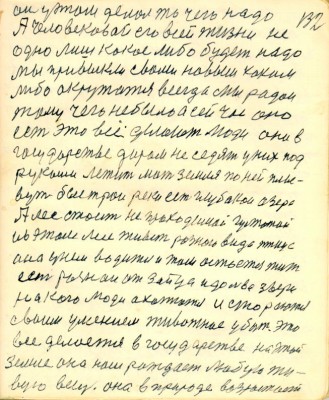 он у том делоя то чего надо
132
А человековаи его всей жизни не
одно лиш какое либо будет надо
мы привыкли своми новым каким
либо окружатся всегда мы ради
тому чего небыло а сей час оно
ест это всё делают люди они в
государстве даром не седят у них под
руками летит мат земля по ней плы-
вут быстрои реки ест глубокои озера
А лес стоит не проходимои густои
и в этом лесе живет разного вида птиц
она у нем водится и там остается жит
ест разнои от зайца и до льва звери
на кого люди охотятся и стараются
своим умением животное убит это
все делается в государстве на этой
земле она нам рождает любую жи-
вую вещ. она в природе возростает